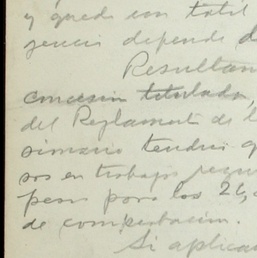 y queda con total
gencia depende d
Resultan
concesion titulada,
del Reglamento de l
simario tendria q
sos en trabajos requ
pesos para los 26,
de computacion.
Si aplica